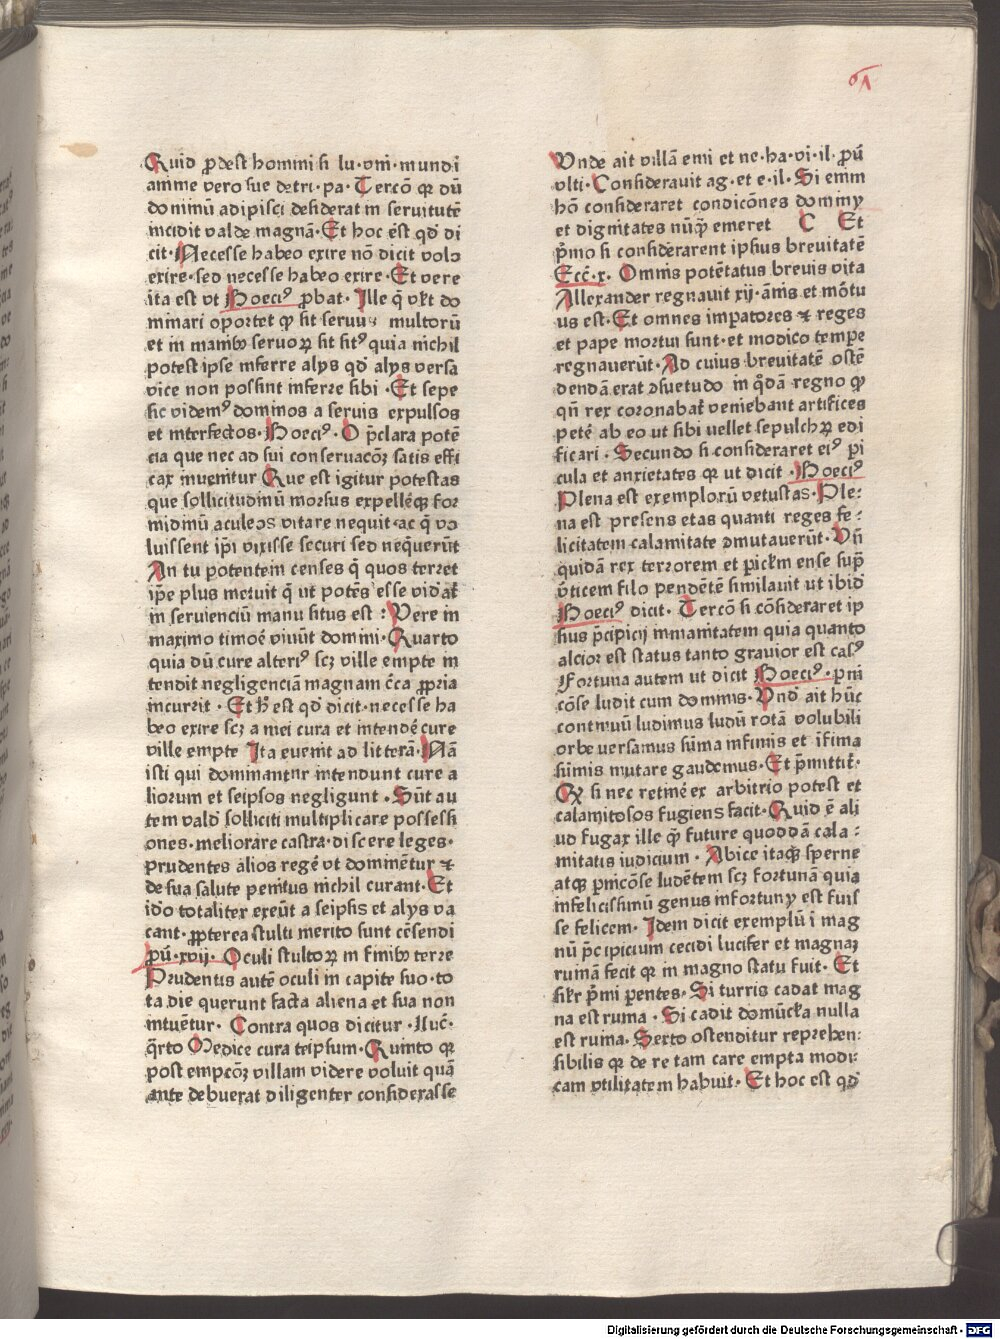 61
Quid ꝓdest homini si lu·vni·mundi
anime vero sue detri·pa· Tercō qꝛ dū
dominū adipisci desiderat in seruitutē
incidit valde magnā· Et hoc est qd di
cit· Necesse habeo exire nō dicit volo
exire· sed necesse habeo exire· Et vere
ita est vt Boeciꝰ ꝓbat· Ille q̄ vlt do
minari oportet qꝫ sit seruus multorū
et in manibꝫ seruoꝝ sit sitꝰ quia nichil
potest ipse inferre alijs qd alys versa
vice non possint inferre sibi· Et sepe
sic videmꝰ dominos a seruis expulsos
et interfectos· Boeciꝰ· O p̄clara potē
cia que nec ad sui conseruacōꝫ satis effi
cax inuenitur Que est igitur potestas
que sollicitudinū morsus expelleꝫ for
midinū aculeos vitare nequit· ac q̄ vo
luissent ip̄i vixisse securi sed nequerūt
An tu potentem censes q̄ quos terret
ip̄e plus metuit q̄ ut potēs esse videat̄
in seruienciū manu situs est : Vere in
maximo timore viuūt domini· Quarto
quia dū cure alteriꝰ scꝫ ville empte in
tendit negligenciā magnam c̄ca ꝓpria
incurrit · Et h̄ est qd dicit· necesse ha
beo exire scꝫ a mei cura et intendē cure
ville empte Ita euenit ad litterā· Nā
isti qui dominantur intendunt cure a
liorum et seipsos negligunt · Sūt au
tem vald solliciti multiplicare possessi
ones· meliorare castra· discere leges·
prudentes alios regē vt dominētur ⁊
de sua salute penitus nichil curant· Et
ido totaliter exeūt a seipsis et alys va
cant· ꝓpterea stulti merito sunt cēsendi
ꝓū·xvij· Oculi stultoꝝ in finibꝫ terre
Prudentis autē oculi in capite suo· to
ta die querunt facta aliena et sua non
intuētur· Contra quos dicitur · luc̄·
q̄rto Medice cura teipsum· Quinto qꝛ
post empcōꝫ villam videre voluit quā
ante debuerat diligenter considerasse
Vnde ait villā emi et ne·ha·vi·il· ꝓū
vlti· Considerauit ag·et e·il· Si enim
hō consideraret condicōnes dominy
et dignitates nūq̄ emeret C Et
p̄mo si considerarent ipsius breuitatē
Ecc̄·x· Omnis potētatus breuis vita
Allexander regnauit xij·annis et mōtu
us est· Et omnes imꝑatores ⁊ reges
et pape mortui sunt· et modico tempe
regnauerūt· Ad cuius breuitatē ostē
dendā erat ꝯsuetudo in q̄dā regno qꝫ
qn̄ rex coronabat̄ veniebant artifices
petē ab eo ut sibi uellet sepulchꝝ edi
ficari · Secundo si consideraret eiꝰ pi
cula et anxietates qꝛ ut dicit · Boeciꝰ
Plena est exemplorū vetustas· Ple:
na est presens etas quanti reges fe:
licitatem calamitate ꝯmutauerūt· Vn̄
quidā rex terrorem et piclm ense sup̄
v̄ticem filo pendētē similauit ut ibid
Boeciꝰ dicit· Tercō si cōsideraret ip
sius p̄cipicij inmanitatem quia quanto
alcior est status tanto grauior est casꝰ
Fortuna autem ut dicit Boeciꝰ· ꝑni
cōse ludit cum dominis· Vnd ait hūc
continuū ludimus ludū rotā volubili
orbe versamus sūma infimis et īfima
sūmis mutare gaudemus· Et p̄mittit̄·
Qꝫ si nec retine ex arbitrio potest et
calamitosos fugiens facit· Quid ē ali
ud fugax ille q̄ future quoddā cala:
mitatis iudicium · Abice itaqꝫ sperne
atqꝫ ꝑnicōse ludētem scꝫ fortunā quia
infelicissimū genus infortuny est fuis
se felicem· Idem dicit exemplū ī mag
nū p̄cipicium cecidi lucifer et magnaꝫ
ruinā fecit qꝛ in magno statu fuit· Et
silr p̄mi ꝑentes· Si turris cadat mag
na est ruina · Si cadit domūcla nulla
est ruina· Sexto ostenditur reprehen:
sibilis qꝛ de re tam care empta modi:
cam vtilitatem habuit· Et hoc est qd
Digitalisierung gefördert durch die Deutsche Forschungsgemeinschaft · DFG